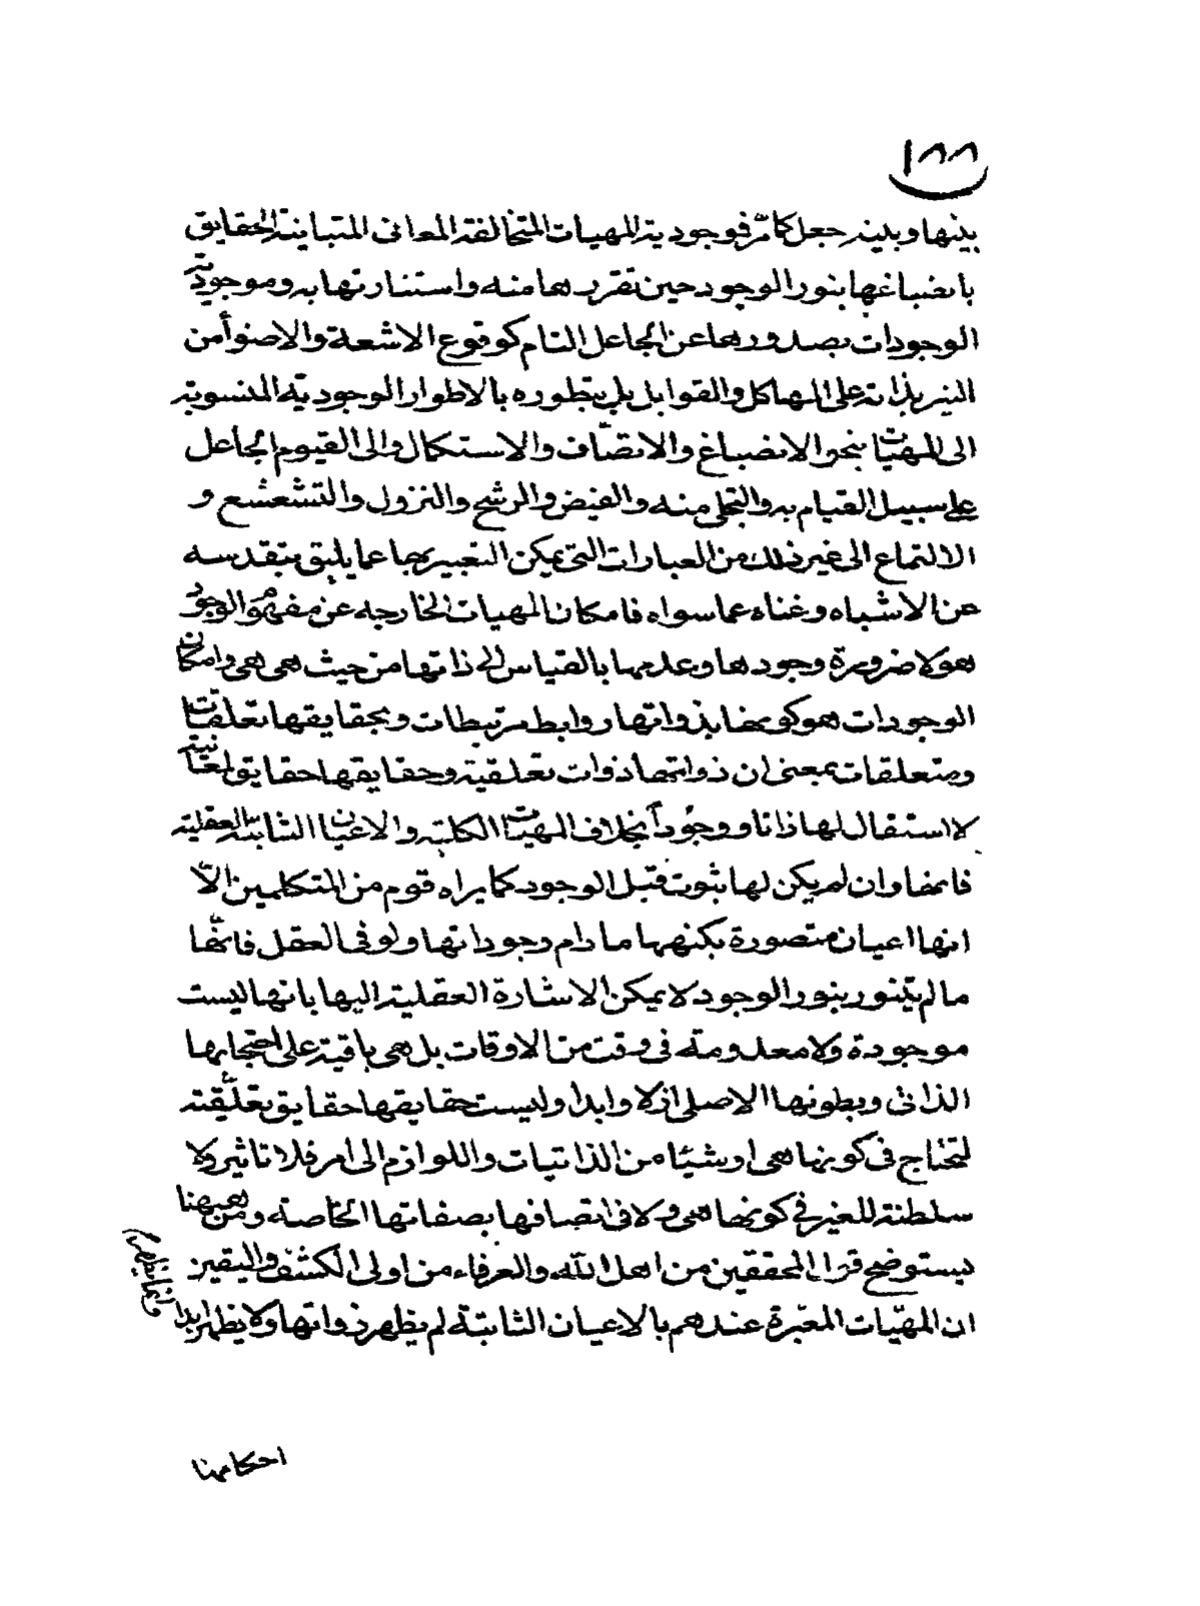 ١٨٨
بينها وبينه جعل كما مرّ فوجودية المهيات المتخالفة المعانى المتباينة الحقايق
بانصباغها بنور الوجود حين تقررها منه واستنارتها به وموجودية
الوجودات بصدورها عن الجاعل التام كوقوع الاشعة والاضوأ من
النير بذاته على الهياكل والقوابل بل بتطوره بالاطوار الوجودية المنسوبة
الى المهيّات بنحو الانصباغ والاتصّاف والاستكمال والى القيوم الجاعل
على سبيل القيام به والتجلى منه والفيض والرشح والنزول والتشعشع و
الالتماع الى غير ذلك من العبارات التى يمكن التعبير بها عما يليق بتقدسه
عن الاشباه وغناه عما سواه فامكان المهيات الخارجه عن مفهومها الوجود
هو لا ضرورة وجودها وعدمها بالقياس الى ذاتها من حيث هى هى وامكان
الوجودات هو كونها بذواتها روابط مرتبطات وبحقايقها تعلقات
ومتعلقات بمعنى ان ذواتها ذوات تعلقية وحقايقها حقايق لمعانية
لا استقلال لها ذاتا ووجوداً بخلاف المهيّات الكلية والاعيان الثابتة العقلية
فانها وان لم يكن لها ثبوت قبل الوجود كما يراه قوم من المتكلمين الاّ
انها اعيان متصورة بكنهها مادام وجوداتها ولو فى العقل فانّها
ما لم يتنور بنور الوجود لا يمكن الاشارة العقلية اليها بانها ليست
موجودة ولا معدومة فى وقت من الاوقات بل هى باقية على احتجابها
الذاتى وبطونها الاصلى ازلا وابدا وليست حقايقها حقايق تعلّقية
لتحتاج فى كونها هى او شيئا من الذاتيات واللوازم الى امر فلا تاثير ولا
سلطنة للغير فى كونها هى ولا فى اتصافها بصفاتها الخاصة ومن هيهنا
يستوضح قول المحققين من اهل الله والعرفاء من اولى الكشف واليقين
ان المهيّات المعبّرة عندهم بالاعيان الثابتة لم يظهر ذواتها ولا يظهر ابدا وانما يظهر
احكامها